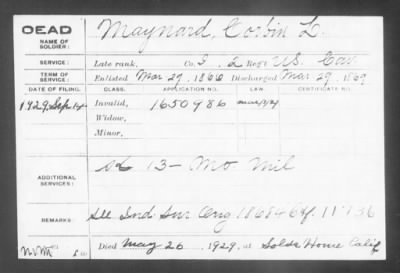 DEAD
NAME OF SOLDIER: Maynard, Corbin L.
SERVICE: Late rank, Co. I, 2 Reg't U.S. Cav
TERM OF SERVICE: Enlisted Mar 29, 1866 Discharged Mar. 29, 1869
DATE OF FILING. CLASS. APPLICATION NO. LAW. CERTIFICATE NO.
1929 Sep Invalid, 1650986
Widow,
Minor,
ADDITIONAL SERVICES: 13 - Mo Mil
REMARKS: See Ind Sur Orig
Died May 26, 1929, at Solds Home Calif